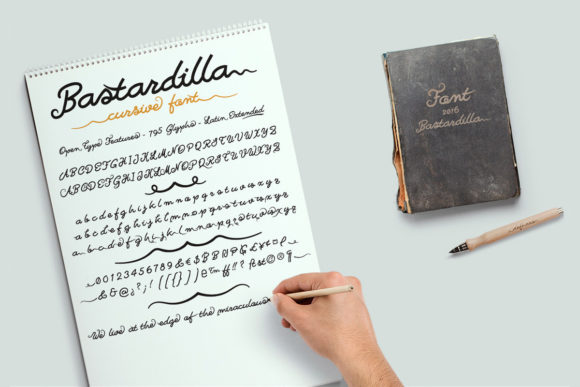 Bastardilla
cursive font
Open Type Features - 795 Glyphs - Latin Extended
ABCDEFGHIJKLMNOPQRSTUVWXYZ
ABCDEFGHIJKLMNOPQRSTUVWXYZ
abcdefghijklmnopqrstuvwxyz
abcdefghijklmnopqrstuvwxyz
abcdefghijklmnopqrstuvwxyz
0123456789
& @ ¿ ? ¡ ! [ ( { } ) ]
We live at the edge of the miraculous
Font
2016
Bastardilla